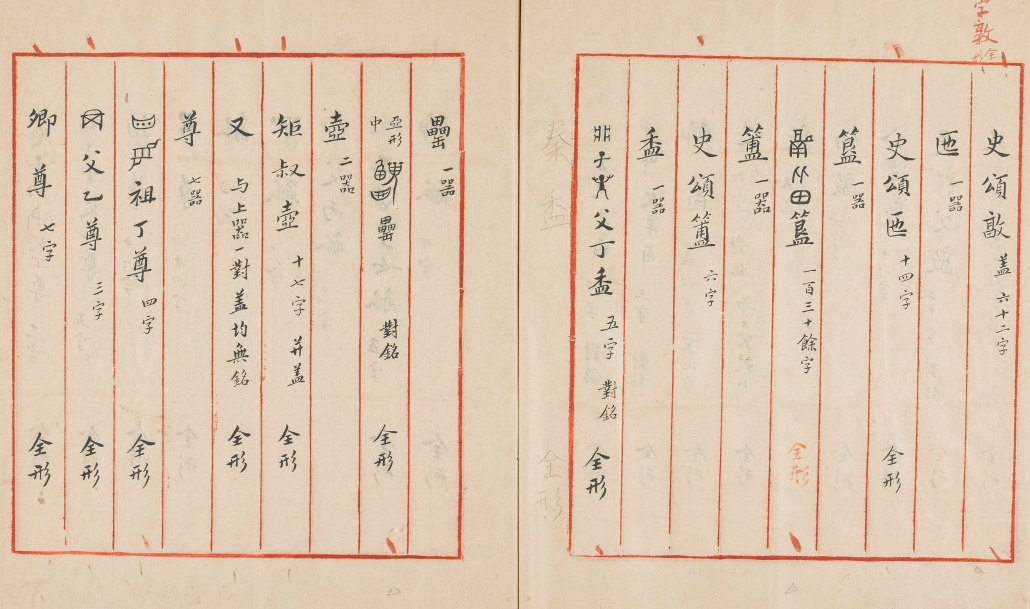 字敦
全形
史頌敦 蓋 六十二字
匜 一器
史頌匜 十四字 全形
簋 一器
田簋 一百三十餘字 全形
簠 一器
史頌簠 六字
盉 一器
子 父丁盉 五字 對銘 全形
秦盉 全形
罍 一器
亞形中 罍 對銘 全形
壺 二器
矩叔壺 十七字 并蓋 全形
又 与上器一對蓋均無銘 全形
尊 七器
祖丁尊 四字 全形
父乙尊 三字 全形
卿尊 七字 全形